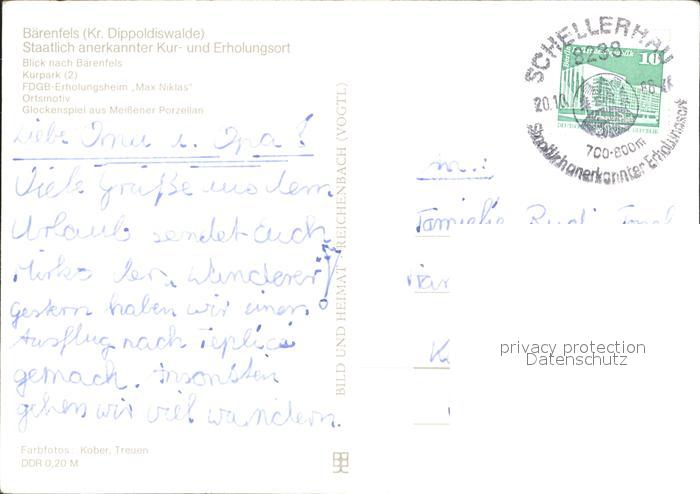 Bärenfels (Kr. Dippoldiswalde)
Staatlich anerkannter Kur- und Erholungsort
Blick nach Bärenfels
Kurpark (2)
FDGB-Erholungsheim „Max Niklas"
Ortsmotiv
Glockenspiel aus Meißener Porzellan
Liebe Omu u. Opa!
Viele Grüße aus dem
Urlaub sendet Euch
Mirko der „Wanderer"!
gestern haben wir einen
Ausflug nach Teplice
gemach. Ansonsten
gehen wir viel wandern.
Farbfotos: Kober, Treuen
DDR 0,20 M
BILD UND HEIMAT REICHENBACH (VOGTL)
SCHELLERHAU
8238
20.10.
10
700-800m
Staatlich anerkannter Erholungsort
Familie
privacy protection
Datenschutz